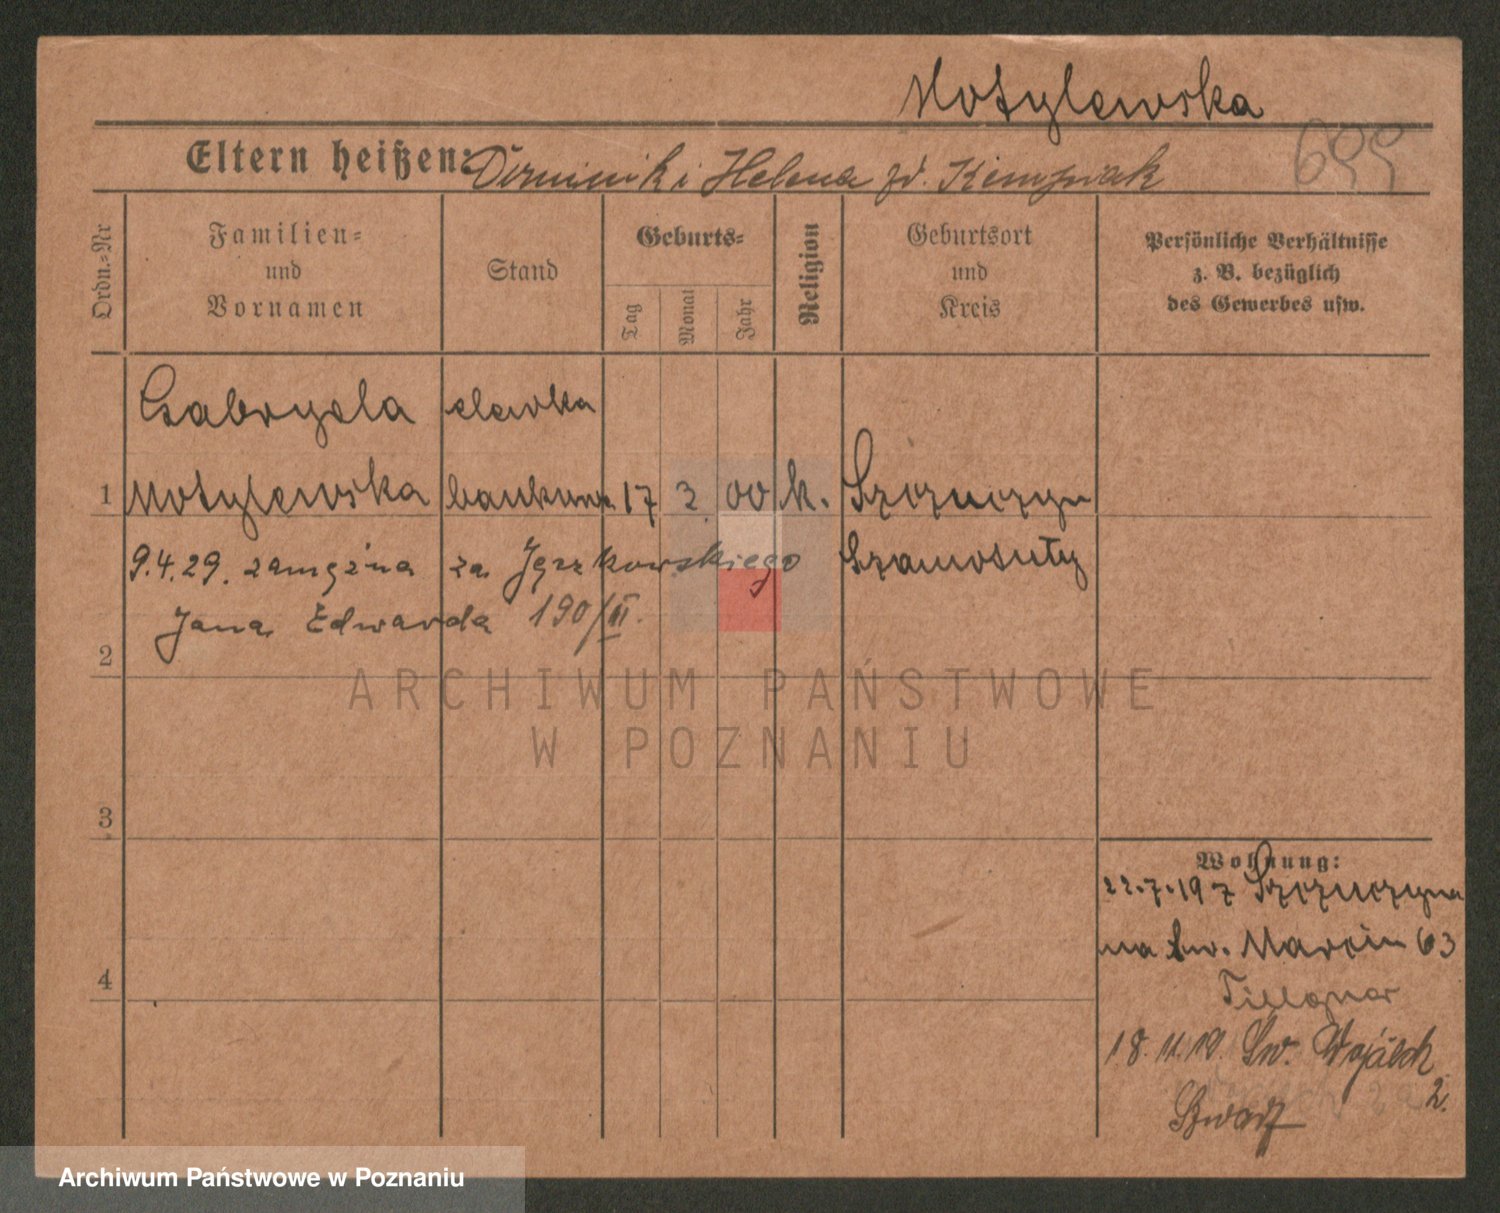 Motylewska
Eltern heißen: Dominik i Helena zd. Kempiak
Ordn.=Nr
Familien=
und
Vornamen
Stand
Geburts=
Tag
Monat
Jahr
Religion
Geburtsort
und
Kreis
Persönliche Verhältnisse
z. B. bezüglich
des Gewerbes usw.
Gabryela elewka
1 Motylewska bankowa 17 2. 00 k. Szczuczyn
9.4.29. zamężna za Jęczkowskiego Szamotuły
Jana Edwarda 190/II.
2
ARCHIWUM PAŃSTWOWE
W POZNANIU
3
Wohnung:
22.7.19 z Szczuczyna
na Św. Marcin 63
18.11.19. Św. Wojciech
2.
4
Archiwum Państwowe w Poznaniu